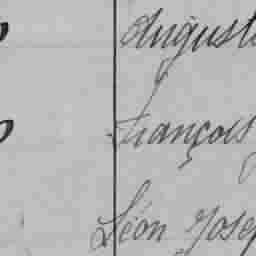 August
François
Léon Josep